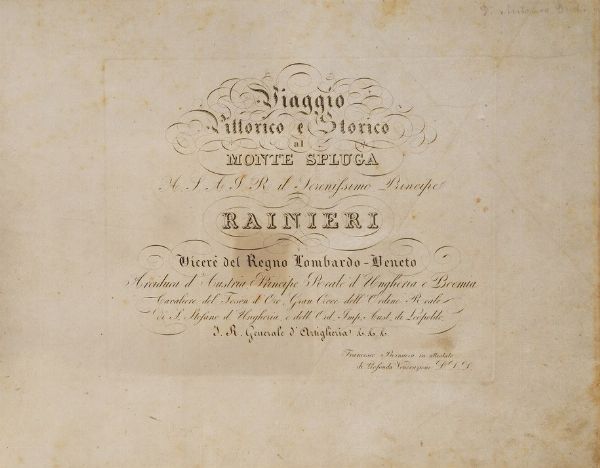 Viaggio
Pittorico e Storico
al
MONTE SPLUGA
A S. A. I. R. il Serenissimo Principe
RAINIERI
Vicerè del Regno Lombardo-Veneto
Arciduca d'Austria Principe Reale d'Ungheria e Boemia
Cavaliere del Toson d'Oro Gran Croce dell'Ordine Reale
di S. Stefano d'Ungheria, e dell'Ord. Imp. Aust. di Leopoldo
I. R. Generale d'Artiglieria &. &. &.
Francesco in attestato
di Profonda Venerazione D. D. D.